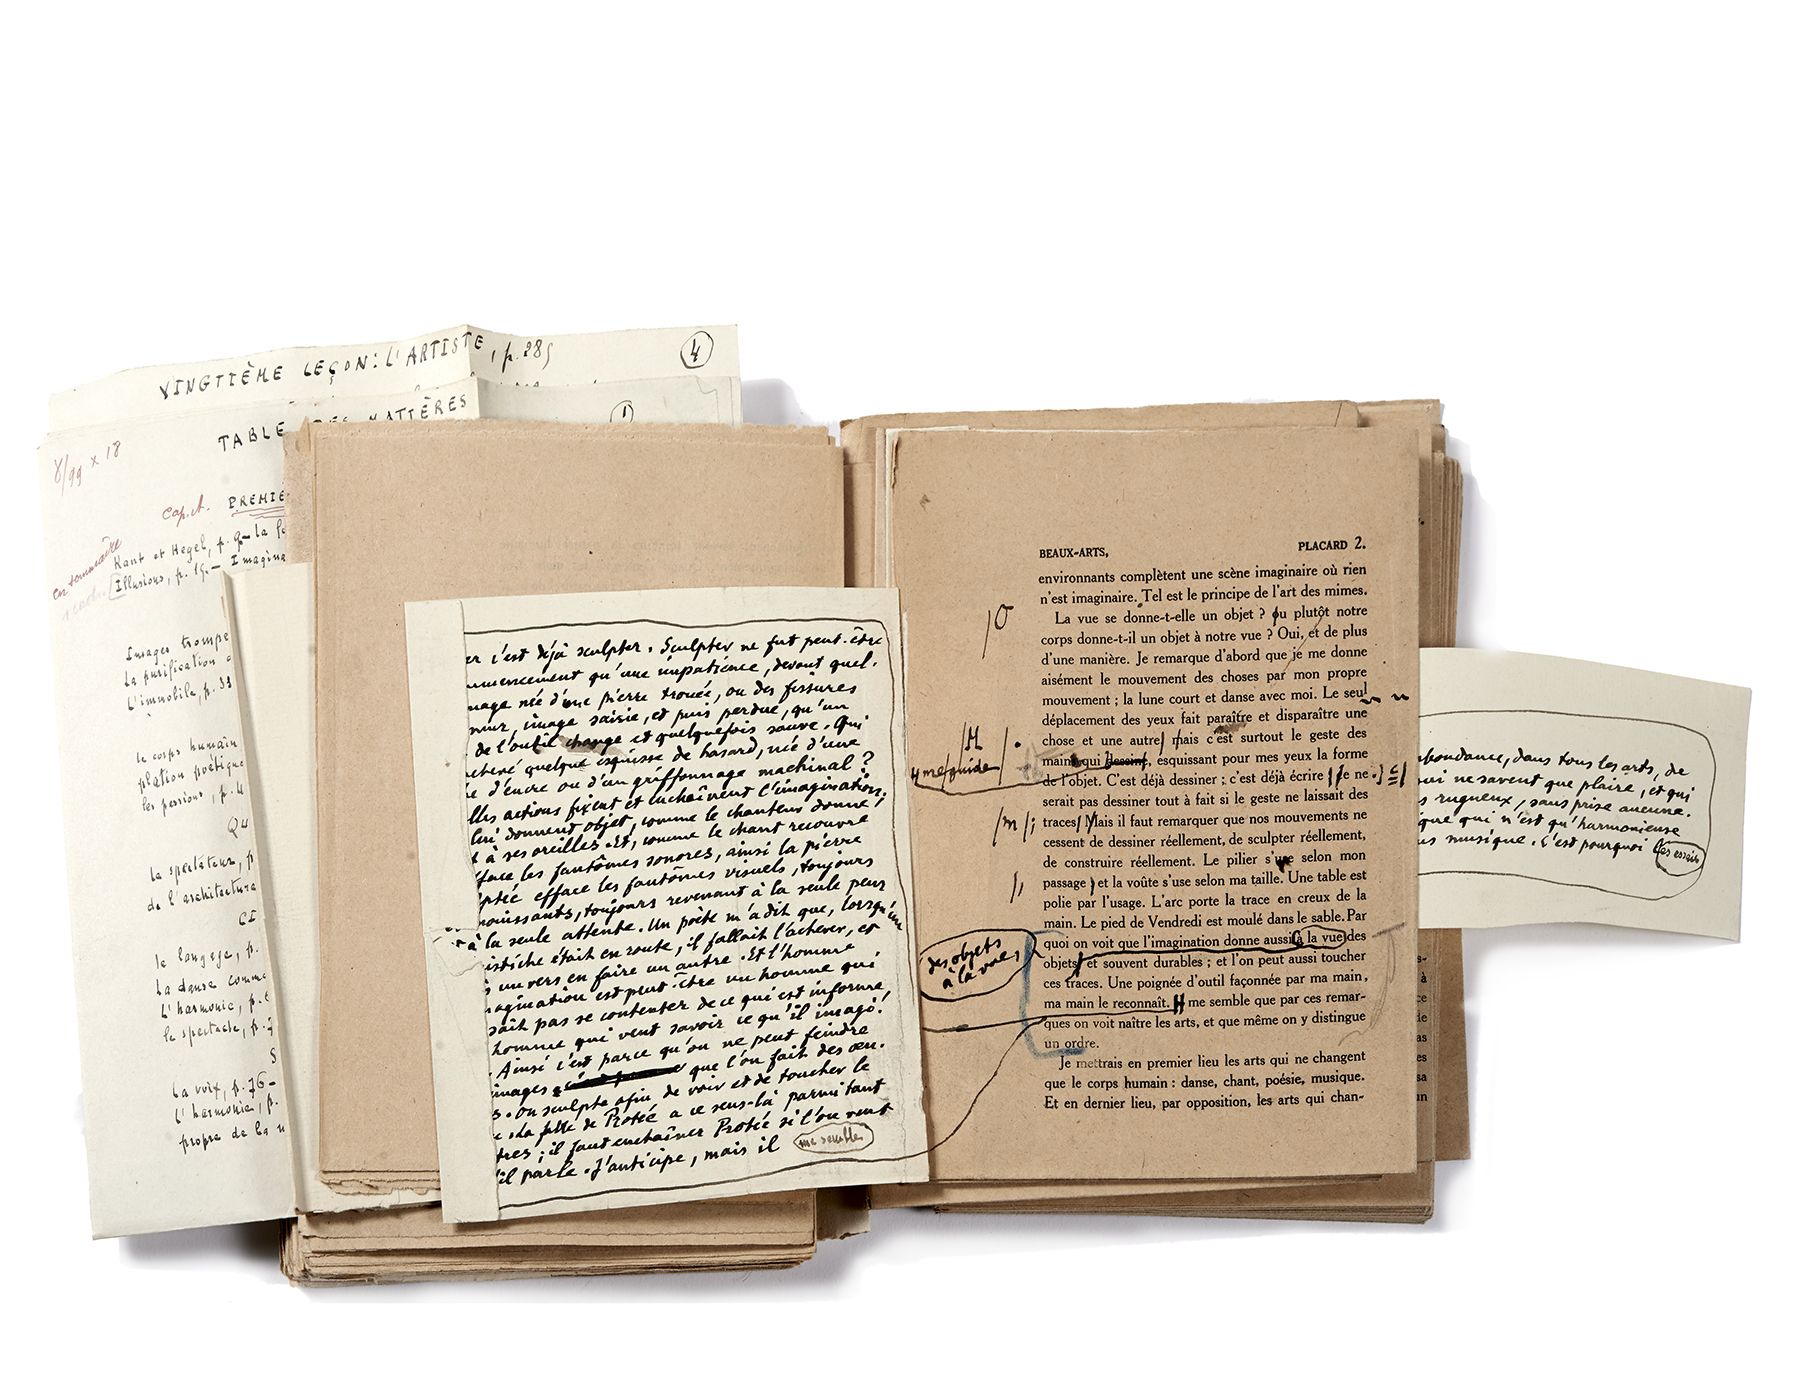 VINGTIÈME LEÇON: L'ARTISTE, p. 285
4
TABLE DES MATIÈRES
1
8/99 x 18
cap. d. PREMIÈ
Kant et Hegel, p. 9 — la
en sommaire
Illusions, p. 15. — Imagina
Images trompe
La purification
L'immobile, p. 31
Le corps humain
plation poétique
les passions, p. 4
QU
Le spectateur, p
de l'architecture
CI
Le langage, p.
La danse comme
L'harmonie, p. 6
Le spectacle, p. 7
S
La voix, p. 76 —
L'harmonie, p.
propre de la m
er c'est déjà sculpter. Sculpter ne fut peut-être
mmencement qu'une impatience, devant quel-
mage née d'une pierre trouée, ou des fissures
mur, image saisie, et puis perdue, qu'un
de l'outil change et quelquefois sauve. Qui
achevé quelque esquisse de hasard, née d'une
e d'encre ou d'un griffonnage machinal ?
lles actions fixent et enchaînent l'imagination;
lui donnent objet, comme le chanteur donne
t à ses oreilles. Et, comme le chant recouvre
fface les fantômes sonores, ainsi la pierre
ptée efface les fantômes visuels, toujours
nouissants, toujours revenant à la seule peur
à la seule attente. Un poète m'a dit que, lorsqu'un
istiche était en route, il fallait l'achever, et
un vers en faire un autre. Et l'homme
magination est peut-être un homme qui
sait pas se contenter de ce qui est informe,
homme qui veut savoir ce qu'il imagi.
Ainsi c'est parce qu'on ne peut feindre
images que l'on fait des œu-
s. On sculpte afin de voir et de toucher le
e. La fable de Protée a ce sens-là parmi tant
tres ; il faut enchaîner Protée si l'on veut
'il parle. J'anticipe, mais il me semble
BEAUX-ARTS, PLACARD 2.
environnants complètent une scène imaginaire où rien
n'est imaginaire. Tel est le principe de l'art des mimes.
La vue se donne-t-elle un objet ? ou plutôt notre
corps donne-t-il un objet à notre vue ? Oui, et de plus
d'une manière. Je remarque d'abord que je me donne
aisément le mouvement des choses par mon propre
mouvement ; la lune court et danse avec moi. Le seul
déplacement des yeux fait paraître et disparaître une
chose et une autre mais c'est surtout le geste des
mains qui dessine, esquissant pour mes yeux la forme
de l'objet. C'est déjà dessiner ; c'est déjà écrire je ne
serait pas dessiner tout à fait si le geste ne laissait des
traces Mais il faut remarquer que nos mouvements ne
cessent de dessiner réellement, de sculpter réellement,
de construire réellement. Le pilier s'use selon mon
passage et la voûte s'use selon ma taille. Une table est
polie par l'usage. L'arc porte la trace en creux de la
main. Le pied de Vendredi est moulé dans le sable. Par
quoi on voit que l'imagination donne aussi à la vue des
objets et souvent durables ; et l'on peut aussi toucher
ces traces. Une poignée d'outil façonnée par ma main,
ma main le reconnaît. Il me semble que par ces remar-
ques on voit naître les arts, et que même on y distingue
un ordre.
Je mettrais en premier lieu les arts qui ne changent
que le corps humain : danse, chant, poésie, musique.
Et en dernier lieu, par opposition, les arts qui chan-
des objets
à la vue
bondance, dans tous les arts, de
qui ne savent que plaire, et qui
s rugueux, sans prise aucune.
ique qui n'est qu'harmonieuse
us musique. C'est pourquoi les essais